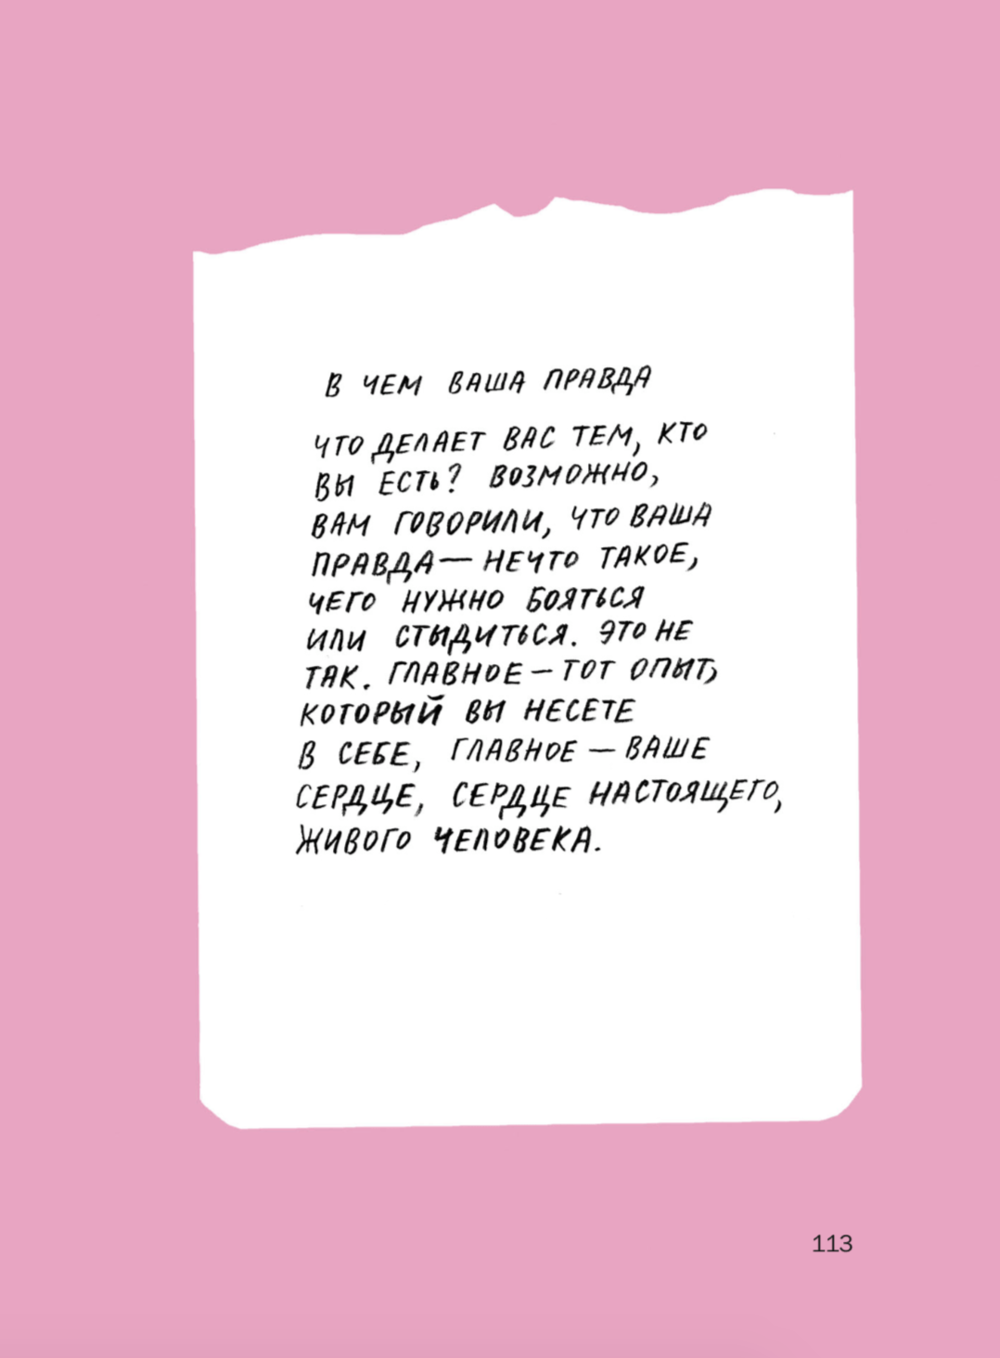 В ЧЕМ ВАША ПРАВДА
ЧТО ДЕЛАЕТ ВАС ТЕМ, КТО
ВЫ ЕСТЬ? ВОЗМОЖНО,
ВАМ ГОВОРИЛИ, ЧТО ВАША
ПРАВДА — НЕЧТО ТАКОЕ,
ЧЕГО НУЖНО БОЯТЬСЯ
ИЛИ СТЫДИТЬСЯ. ЭТО НЕ
ТАК. ГЛАВНОЕ — ТОТ ОПЫТ,
КОТОРЫЙ ВЫ НЕСЕТЕ
В СЕБЕ, ГЛАВНОЕ — ВАШЕ
СЕРДЦЕ, СЕРДЦЕ НАСТОЯЩЕГО,
ЖИВОГО ЧЕЛОВЕКА.
113